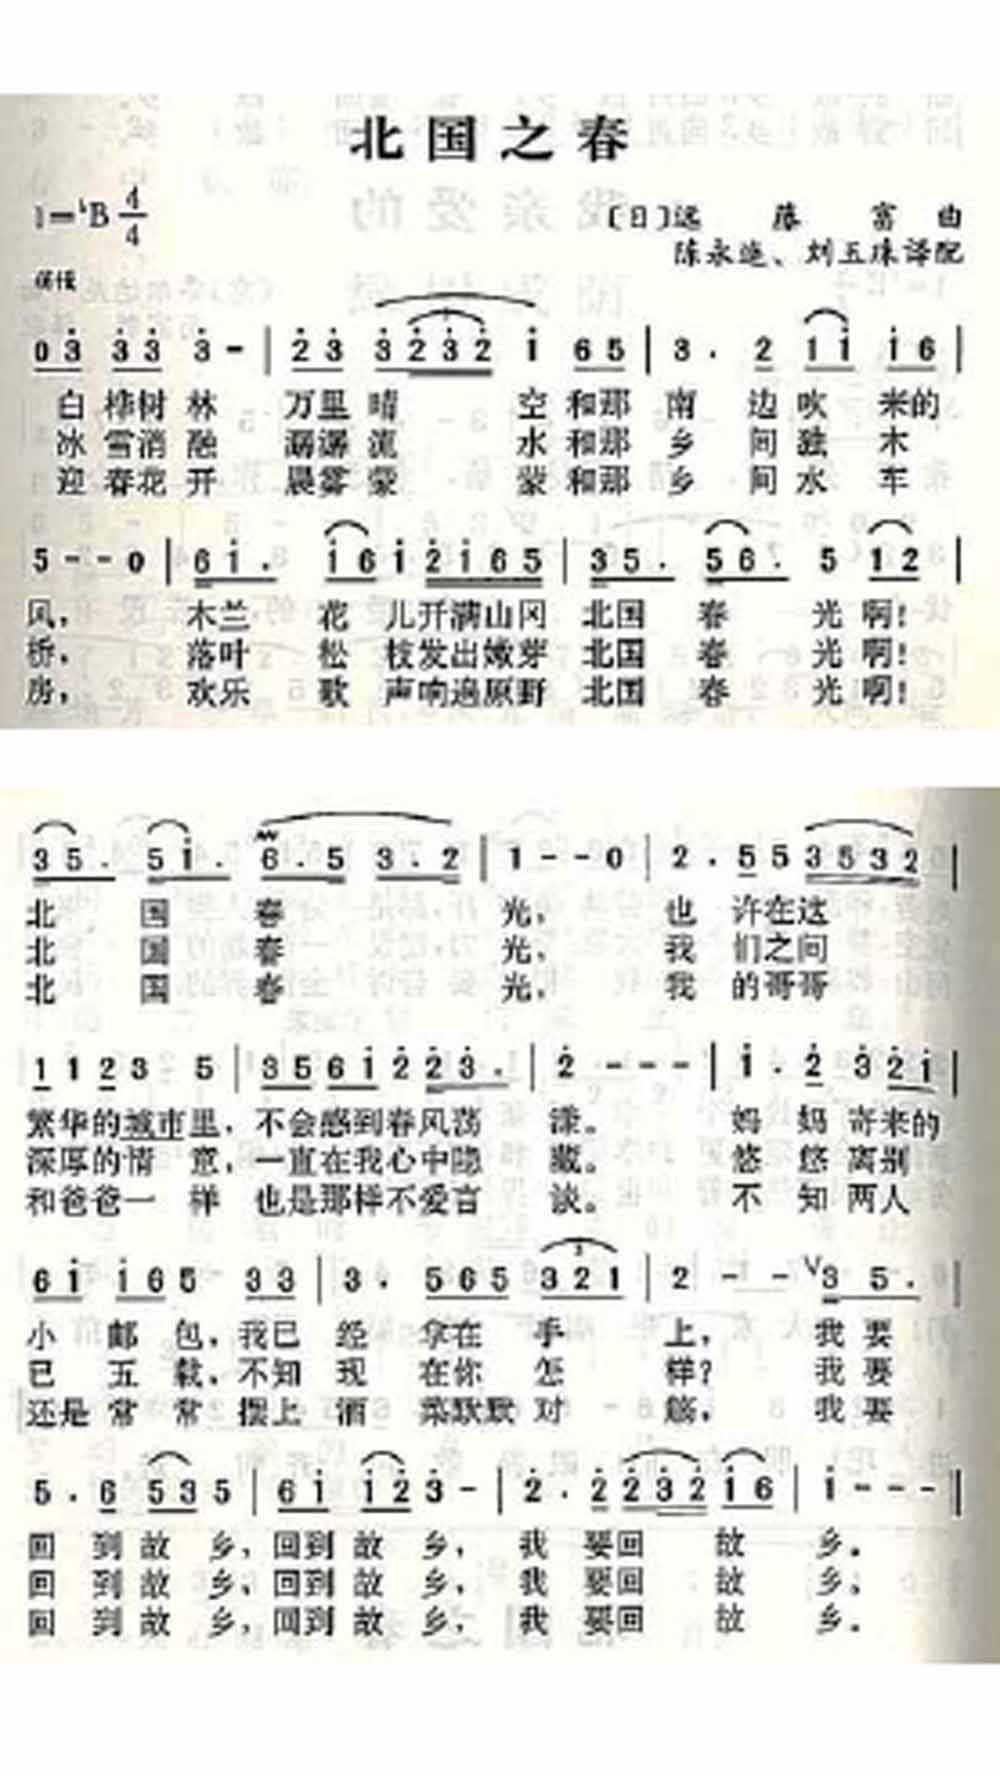 北国之春
1=♭B 4/4
〔日〕远 藤 富 曲
陈永连、刘五珠译配
0 3 3 3 3 - | 2 3 3 2 3 2 1 6 5 | 3 . 2 1 1 1 6 |
白 桦树 林 万里 晴 空 和那 南 边 吹 来的
冰 雪消 融 潺潺 流 水 和那 乡 间 独 木
迎 春花 开 晨雾 蒙 蒙 和那 乡 间 水 车
5 - - 0 | 6 1 . 1 6 1 2 1 6 5 | 3 5 . 5 6 . 5 1 2 |
风， 木兰 花 儿开满山冈 北国 春 光 啊！
桥， 落叶 松 枝发出嫩芽 北国 春 光 啊！
房， 欢乐 歌 声响遍原野 北国 春 光 啊！
3 5 . 5 1 . 6 . 5 3 . 2 | 1 - - 0 | 2 . 5 5 3 5 3 2 |
北 国 春 光， 也 许在这
北 国 春 光， 我 们之间
北 国 春 光， 我 的哥哥
1 1 2 3 5 | 3 5 6 1 2 2 3 . | 2 - - - | 1 . 2 3 2 1 |
繁华的城市里，不会感到春风荡 漾。 妈 妈 寄来的
深厚的情 意，一直在我心中隐 藏。 悠 悠 离别
和爸爸一 样 也是那样不爱言 谈。 不 知 两人
6 1 1 6 5 3 3 | 3 . 5 6 5 3 2 1 | 2 - - V 3 5 . |
小 邮 包，我已 经 拿在 手 上， 我 要
已 五 载，不知 现 在你 怎 样？ 我 要
还是 常 常 摆上 酒 菜默默 对 觞， 我 要
5 . 6 5 3 5 | 6 1 1 2 3 - | 2 . 2 2 3 2 1 6 | 1 - - - |
回 到 故 乡，回到 故 乡， 我 要回 故 乡。
回 到 故 乡，回到 故 乡， 我 要回 故 乡。
回 到 故 乡，回到 故 乡， 我 要回 故 乡。